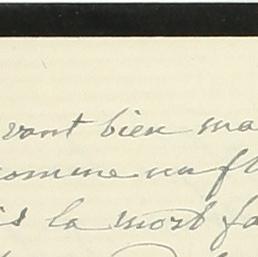 vant bien ma
comme un fl
is la mort fa